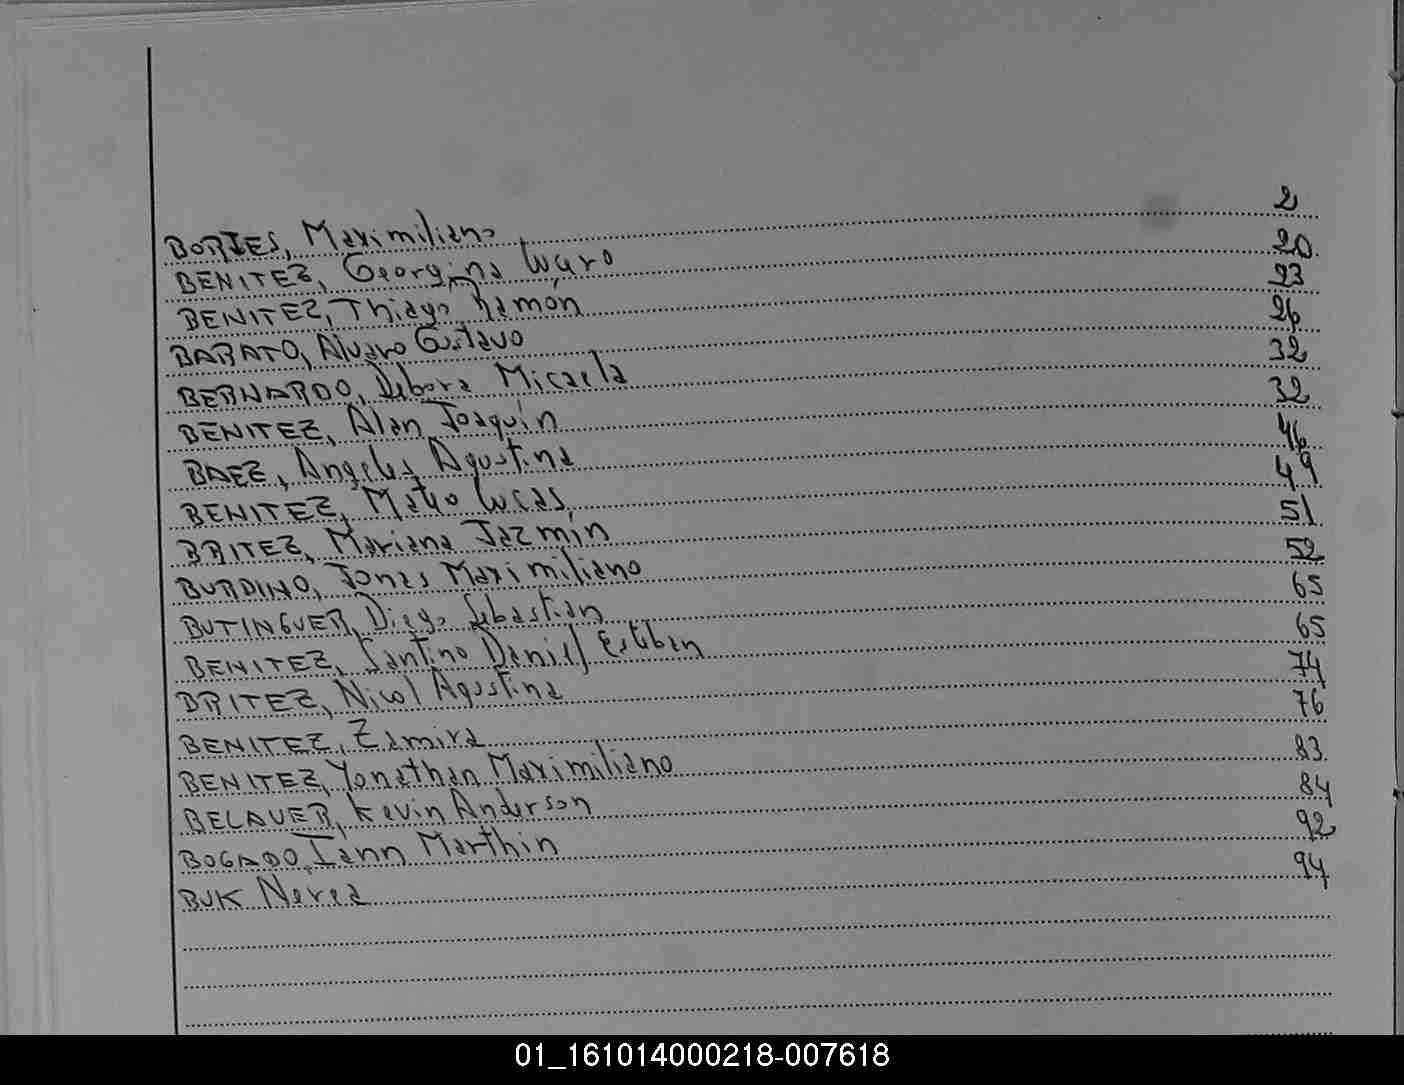 BORIES, Maximiliano 2
BENITEZ, Georgina 20
BENITEZ, Thiago Ramón 23
BARATO, Alvaro Gustavo 26
BERNARDO, Debora Micaela 32
BENITEZ, Alan Joaquín 32
BAEZ, Angeles Agustina 46
BENITEZ, Mateo Lucas 49
BRITEZ, Mariana Jazmín 51
BURDINO, Jonas Maximiliano 52
BUTINGUER, Diego Sebastian 65
BENITEZ, Santino Daniel Esteban 65
BRITEZ, Nicol Agustina 74
BENITEZ, Zamira 76
BENITEZ, Yonathan Maximiliano 83
BELAUER, Kevin Anderson 84
BOGADO, Iann Marthin 92
BUK Nerea 94
01_161014000218-007618